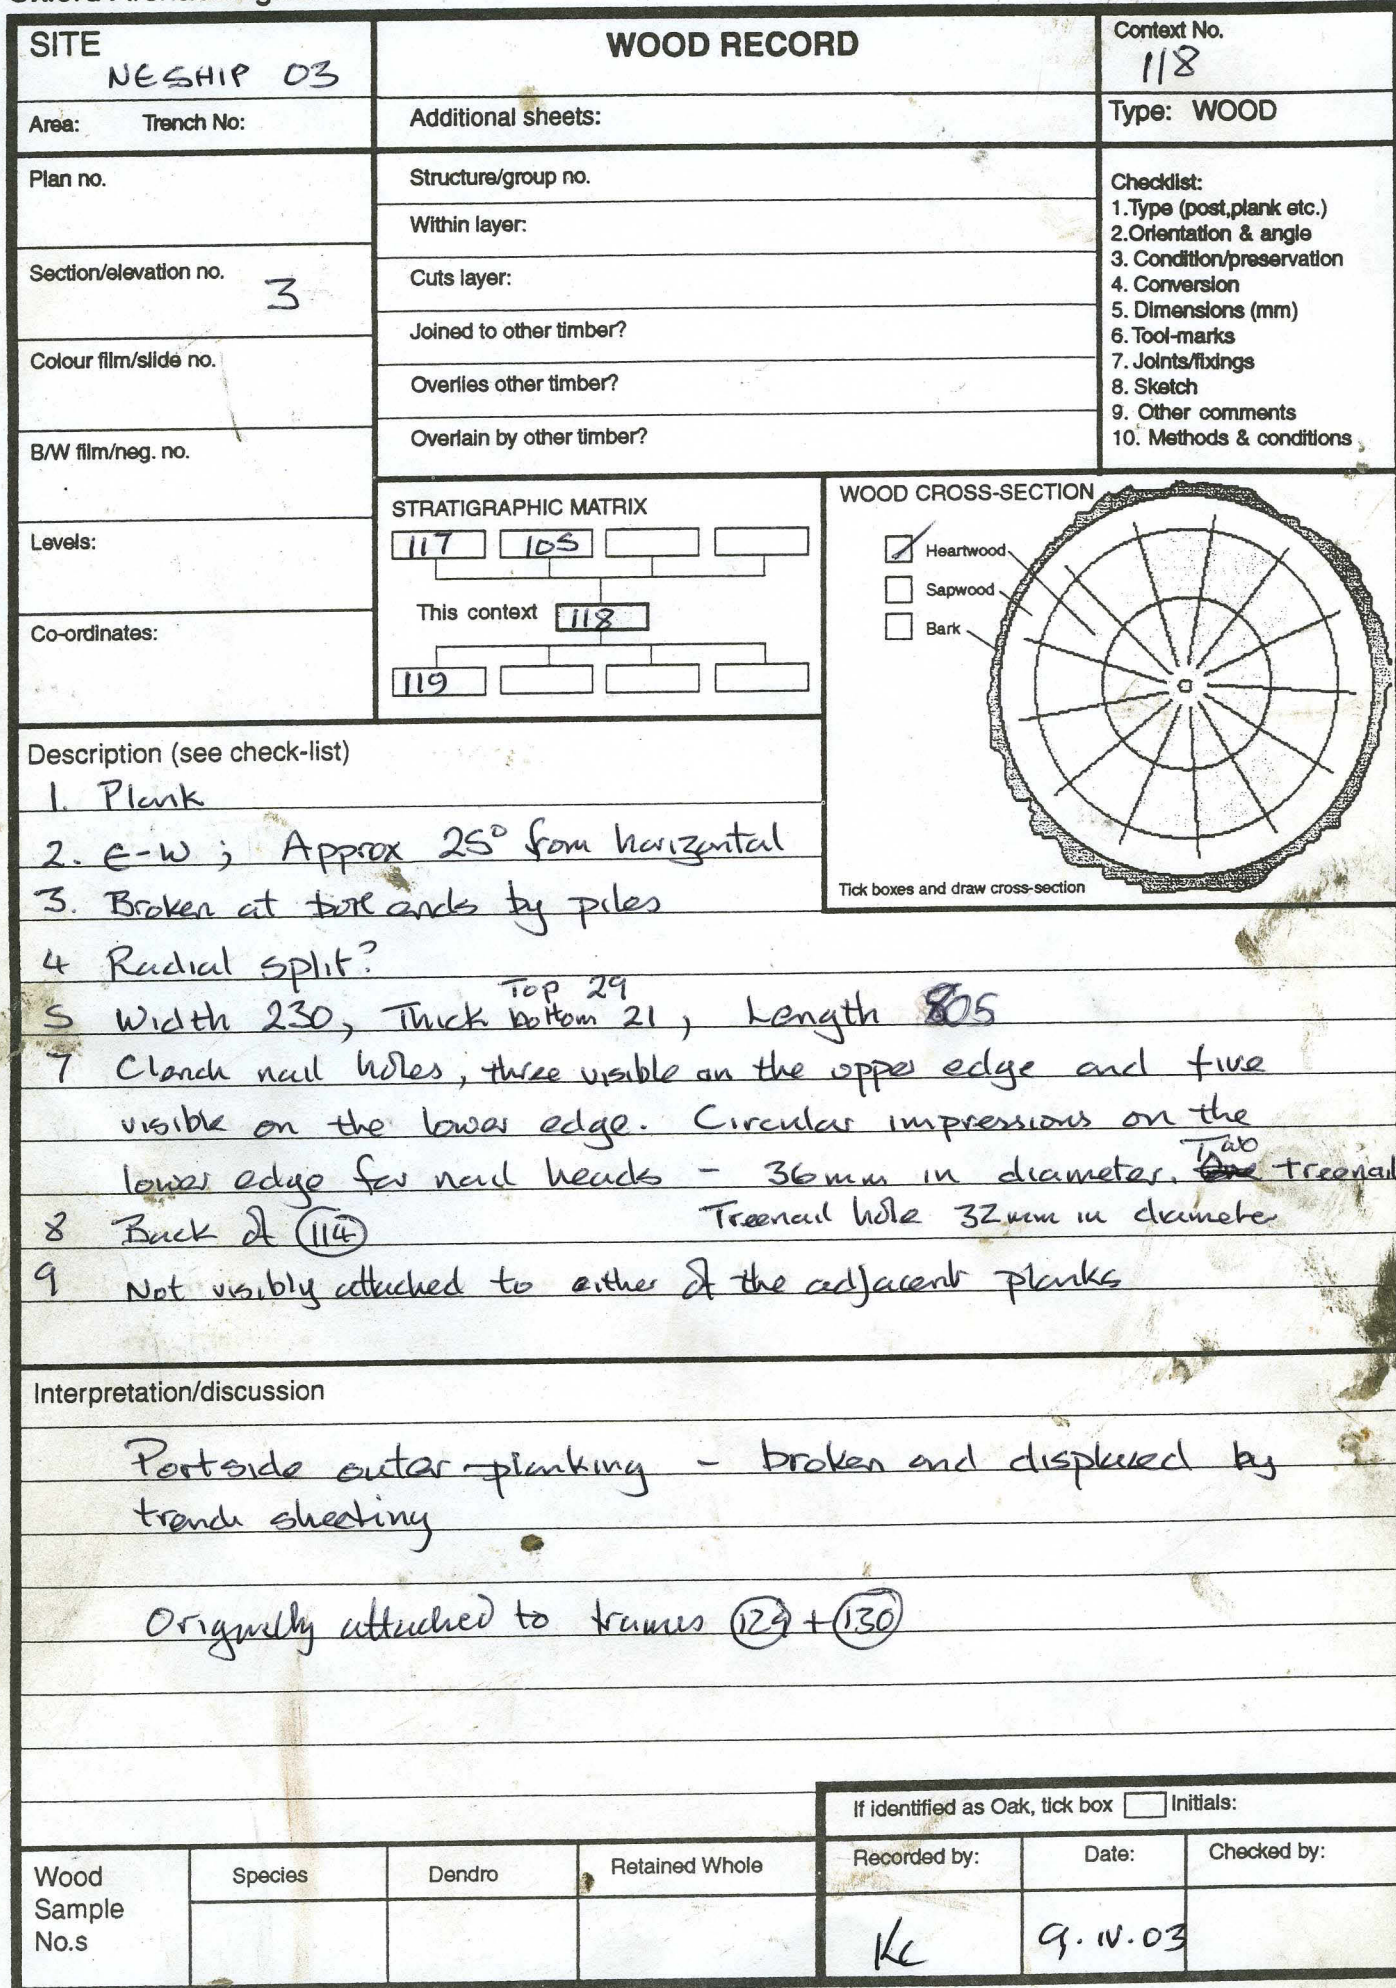 SITE
NESHIP 03
WOOD RECORD
Context No.
118
Area: Trench No:
Additional sheets:
Type: WOOD
Plan no.
Structure/group no.
Within layer:
Section/elevation no.
3
Cuts layer:
Joined to other timber?
Colour film/slide no.
Overlies other timber?
Overlain by other timber?
B/W film/neg. no.
Checklist:
1.Type (post,plank etc.)
2.Orientation & angle
3. Condition/preservation
4. Conversion
5. Dimensions (mm)
6. Tool-marks
7. Joints/fixings
8. Sketch
9. Other comments
10. Methods & conditions
Levels:
Co-ordinates:
STRATIGRAPHIC MATRIX
117 105
This context 118
119
WOOD CROSS-SECTION
Heartwood
Sapwood
Bark
Tick boxes and draw cross-section
Description (see check-list)
1. Plank
2. E-W ; Approx 25° from horizontal
3. Broken at both ends by piles
4 Radial split?
Top 29
5 Width 230, Thick bottom 21, Length 805
7 Clench nail holes, three visible on the upper edge and five
visible on the lower edge. Circular impressions on the
lower edge for nail heads - 36mm in diameter. Two treenail
Treenail hole 32mm in diameter
8 Back of 114
9 Not visibly attached to either of the adjacent planks
Interpretation/discussion
Portside outer planking - broken and displaced by
trench sheeting
Originally attached to frames 129 + 130
If identified as Oak, tick box Initials:
Wood
Sample
No.s
Species
Dendro
Retained Whole
Recorded by:
KC
Date:
9.IV.03
Checked by: